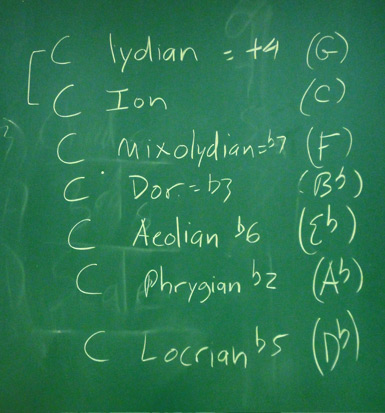 C lydian = +4 (G)
C Ion (C)
C mixolydian=b7 (F)
C Dor=b3 (Bb)
C Aeolian b6 (Eb)
C Phrygian b2 (Ab)
C Locrian b5 (Db)